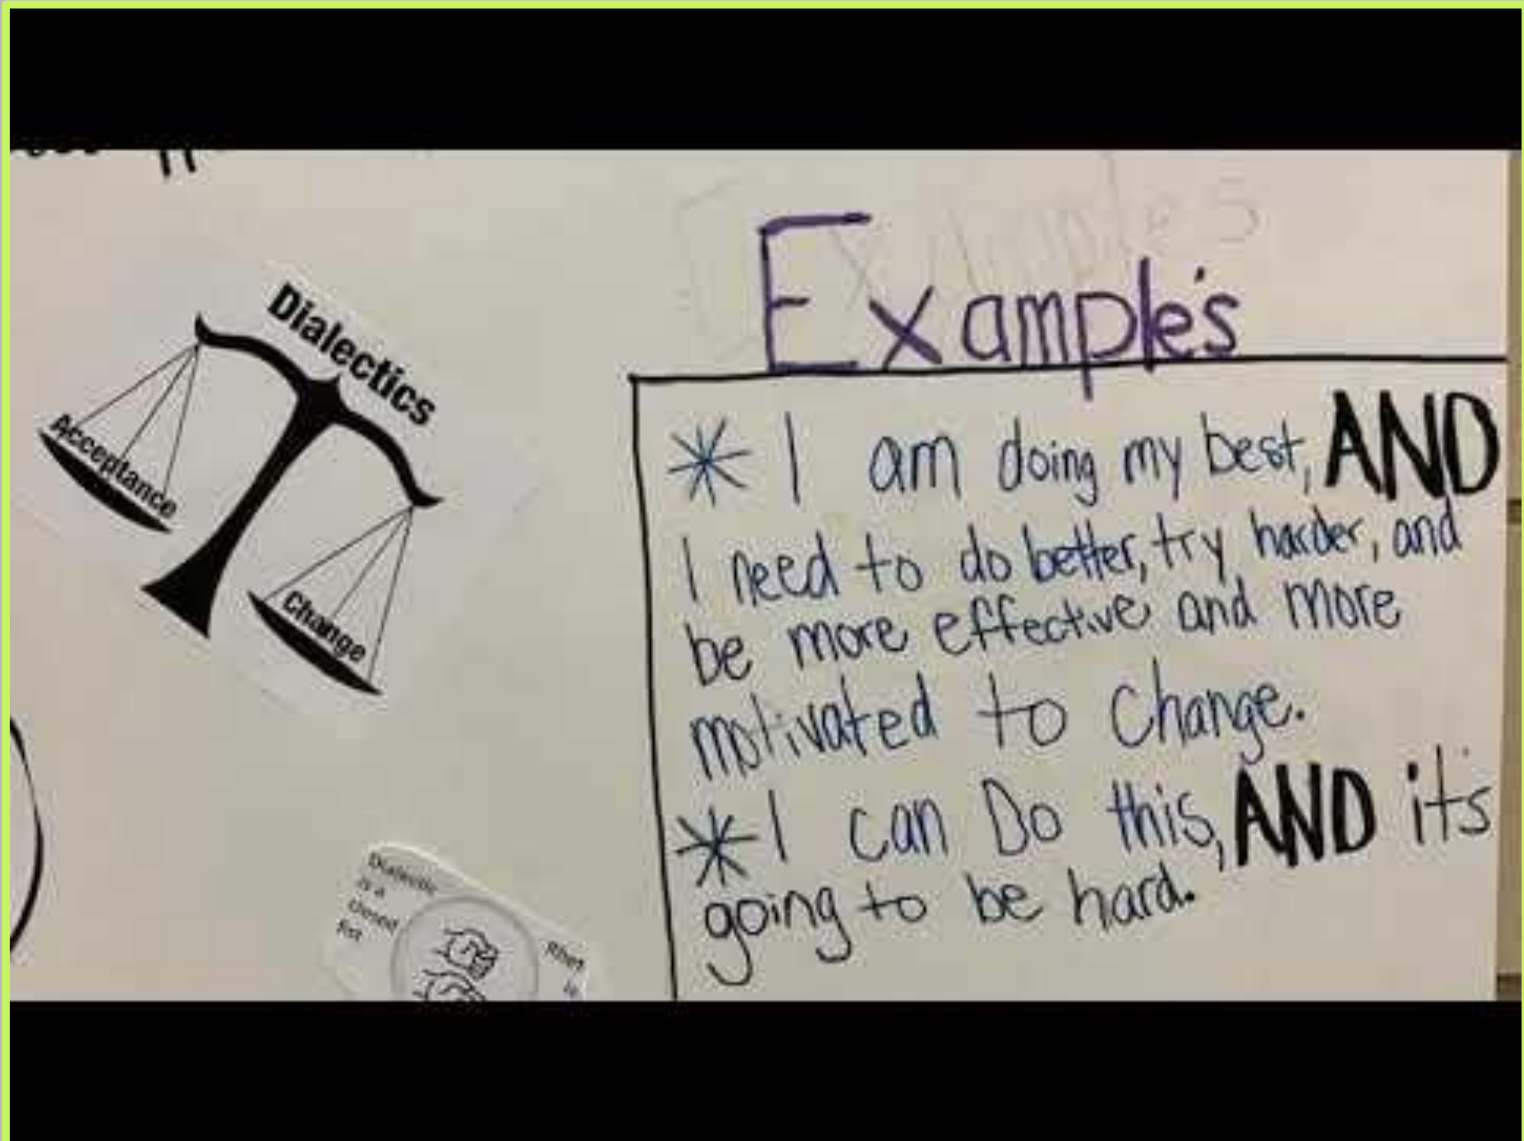 Dialectics
Acceptance
Change
Example's
* I am doing my best, AND
I need to do better, try harder, and
be more effective and more
motivated to change.
* I can Do this, AND it's
going to be hard.
Dialectic
is a
closed
fist